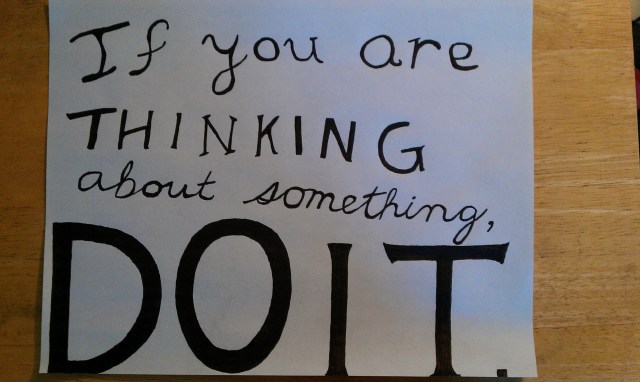 If you are
THINKING
about something,
DO IT.